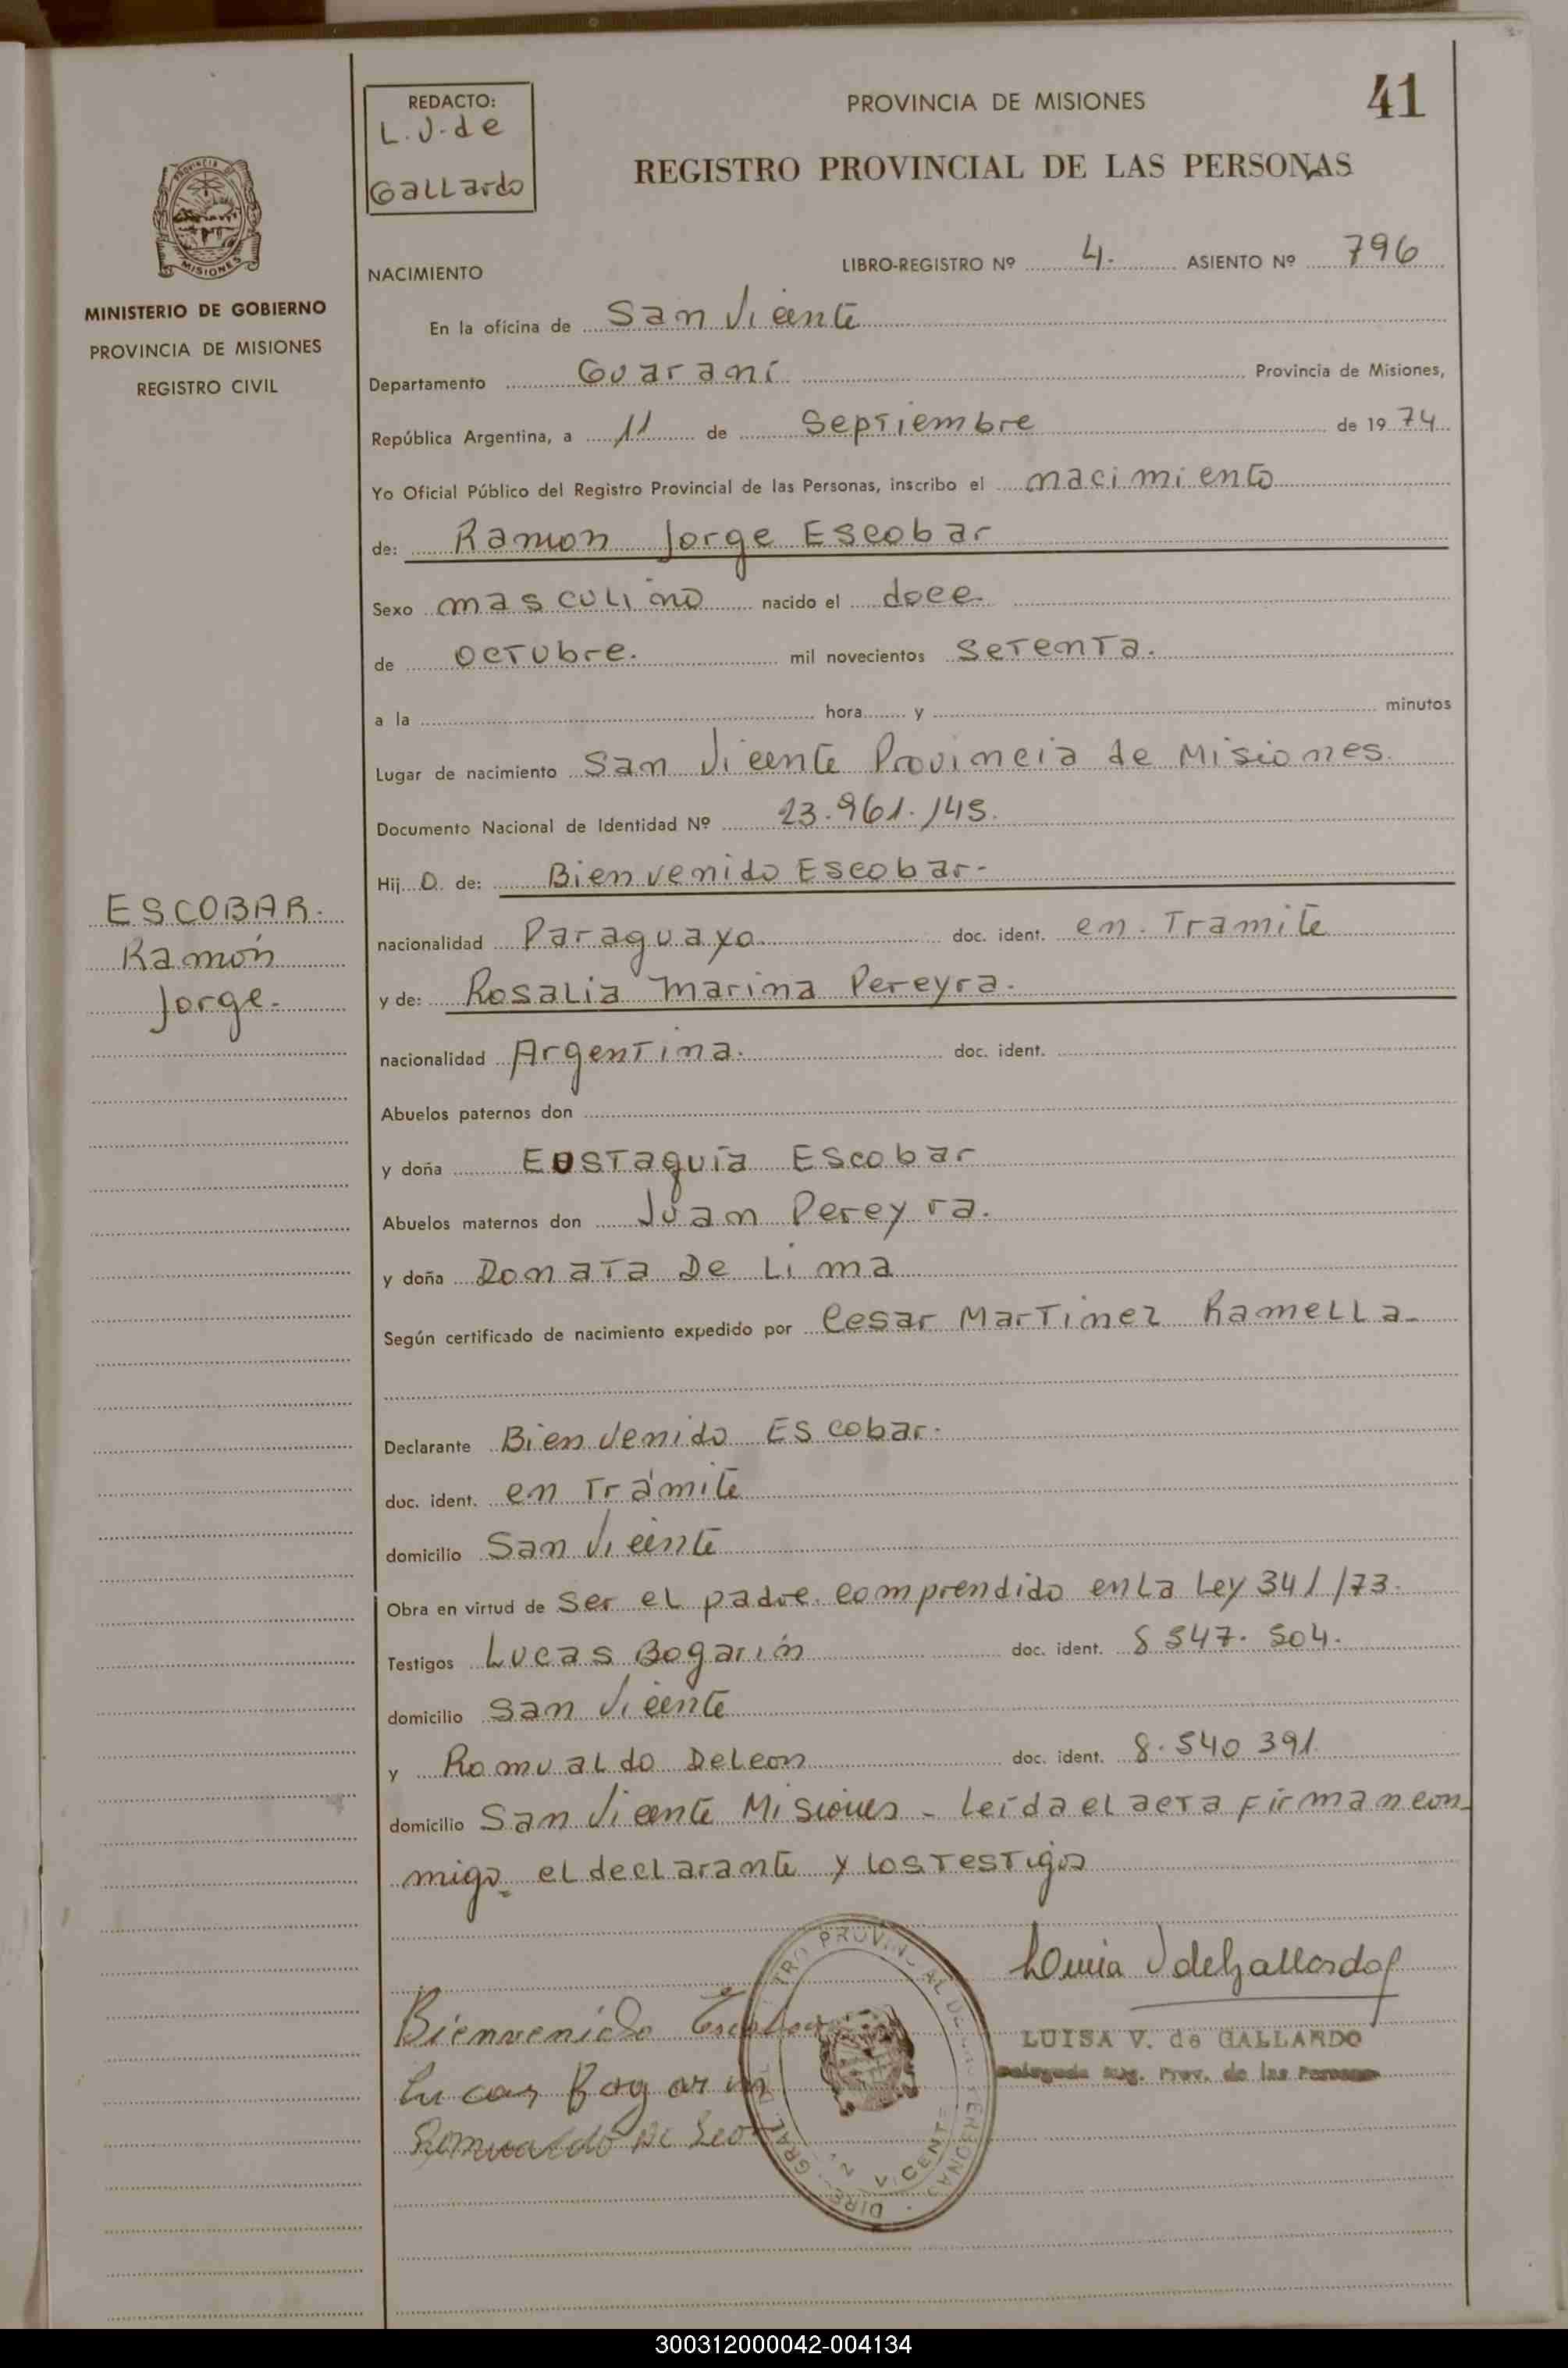 REDACTO:
L. V. de
Gallardo
PROVINCIA DE MISIONES
41
REGISTRO PROVINCIAL DE LAS PERSONAS
PROVINCIA
MISIONES
MINISTERIO DE GOBIERNO
PROVINCIA DE MISIONES
REGISTRO CIVIL
NACIMIENTO
LIBRO-REGISTRO Nº 4. ASIENTO Nº 796
En la oficina de San Vicente
Departamento Guaraní Provincia de Misiones,
República Argentina, a 11 de Septiembre de 1974
Yo Oficial Público del Registro Provincial de las Personas, inscribo el nacimiento
de: Ramon Jorge Escobar
Sexo masculino nacido el doce
de octubre. mil novecientos setenta.
a la hora y minutos
Lugar de nacimiento San Vicente Provincia de Misiones.
Documento Nacional de Identidad Nº 23.961.145.
Hijo de: Bienvenido Escobar-
ESCOBAR.
Ramón
Jorge.
nacionalidad Paraguaya. doc. ident. en Tramite
y de: Rosalia Marina Pereyra.
nacionalidad Argentina. doc. ident.
Abuelos paternos don
y doña Eustaquia Escobar
Abuelos maternos don Juan Pereyra.
y doña Donata De Lima
Según certificado de nacimiento expedido por Cesar Martinez Ramella-
Declarante Bienvenido Escobar.
doc. ident. en Trámite
domicilio San Vicente
Obra en virtud de Ser el padre. comprendido en la Ley 341/73.
Testigos Lucas Bogarín doc. ident. 8 547. 504.
domicilio San Vicente
y Romualdo Deleon doc. ident. 8.540 391.
domicilio San Vicente Misiones - Leída el acta firman con-
migo el declarante y los testigos
Luisa V de Gallardo
Bienvenido Escobar
LUISA V. de GALLARDO
Delegada Reg. Prov. de las Personas
Lucas Bogarin
Romualdo De Leo
DIREC. GRAL. DEL REGISTRO PROVINCIAL DE LAS PERSONAS
VICENTE
300312000042-004134